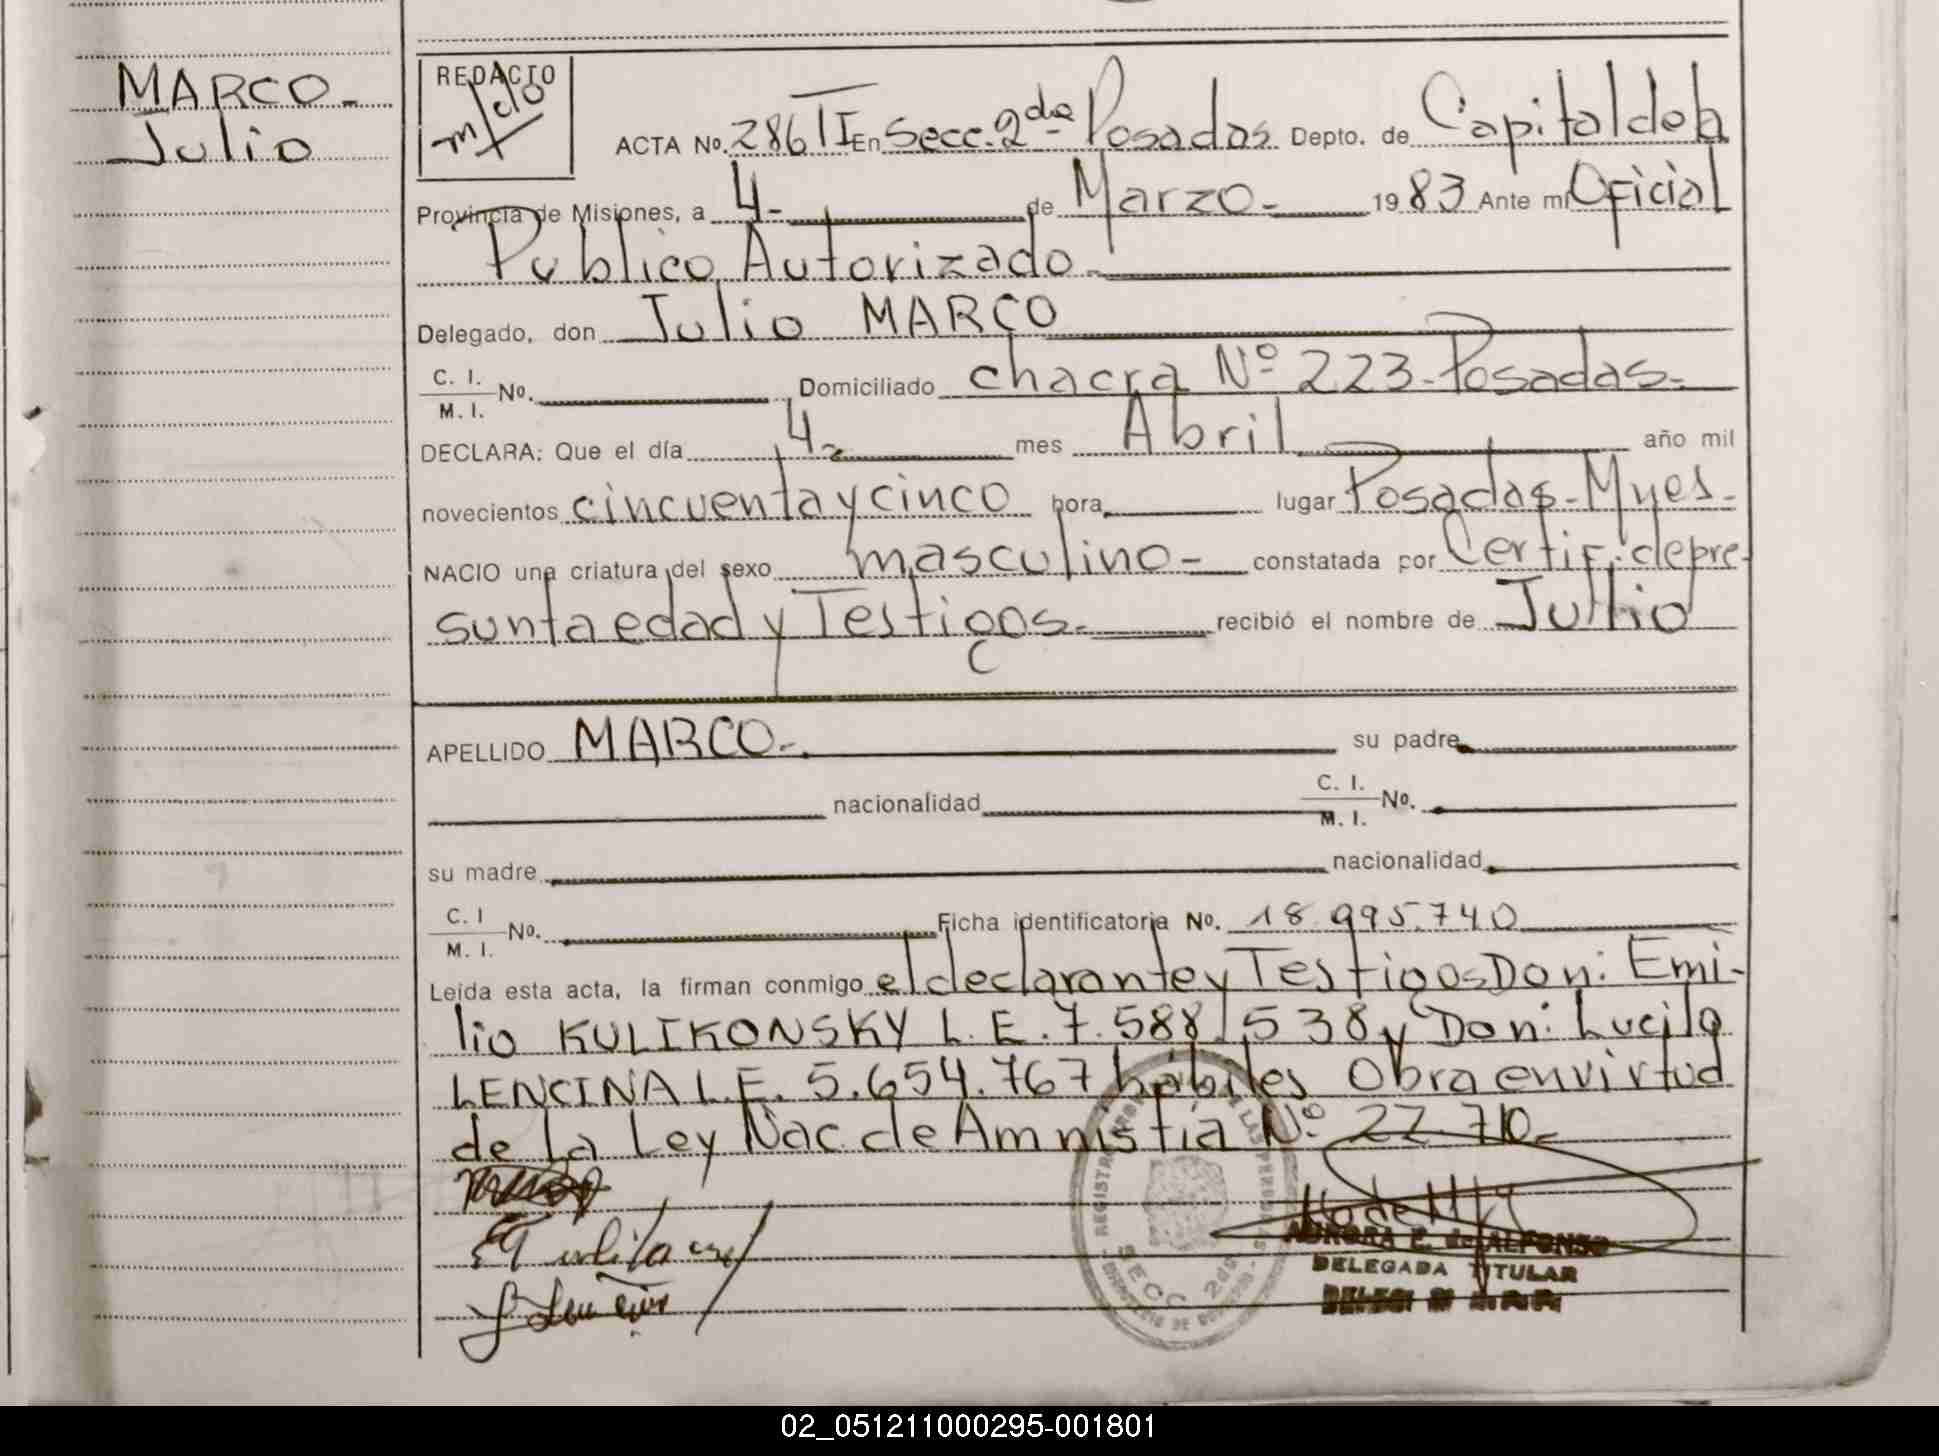 MARCO-
Julio
REDACTO
ACTA No. 286 TI En Secc. 2da Posadas Depto. de Capital de la
Provincia de Misiones, a 4- de Marzo- 1983 Ante mí Oficial
Publico Autorizado-
Delegado, don Julio MARCO
C. I. M. I. No. Domiciliado chacra Nº 223-Posadas-
DECLARA: Que el día 4- mes Abril año mil
novecientos cincuenta y cinco hora lugar Posadas-Mnes-
NACIO una criatura del sexo masculino- constatada por Certif. de pre-
sunta edad y Testigos- recibió el nombre de Julio
APELLIDO MARCO-. su padre
nacionalidad C. I. M. I. No.
su madre nacionalidad
C. I M. I. No. Ficha identificatoria No. 18.995.740
Leída esta acta, la firman conmigo el declarante y Testigos Don: Emi-
lio KULIKONSKY L.E. 7.588.538 y Don: Lucila
LENCINA L.E. 5.654.767 hábiles Obra en virtud
de La Ley Nac. de Amnistía Nº 22.710-
SECC 2da
AURORA E. de ALFONSO
DELEGADA TITULAR
02_051211000295-001801